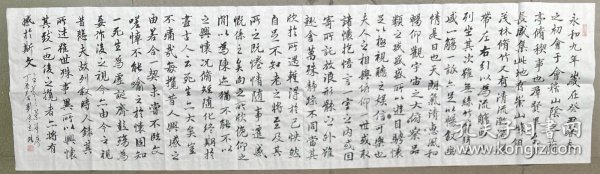 永和九年歲在癸丑暮春
之初會于會稽山陰之蘭
亭脩禊事也羣賢畢至少
長咸集此地有崇山峻領
茂林脩竹又有清流激湍暎
帶左右引以為流觴曲水
列坐其次雖無絲竹管弦之
盛一觴一詠亦足以暢敘幽
情是日也天朗氣清惠風和
暢仰觀宇宙之大俯察品
類之盛所以遊目騁懷
足以極視聽之娛信可樂也
夫人之相與俯仰一世或取
諸懷抱悟言一室之内或因
寄所託放浪形骸之外雖
趣舍萬殊靜躁不同當其
欣於所遇暫得於己快然
自足不知老之將至及其
所之既惓情隨事遷感
慨係之矣向之所欣俛仰之
間以為陳迹猶不能不以
之興懷況脩短隨化終期於
盡古人云死生亦大矣豈
不痛哉每攬昔人興感之
由若合一契未嘗不臨文
嗟悼不能喻之於懷固知
一死生為虛誕齊彭殤為
妄作後之視今亦由今之視
昔悲夫故列敘時人錄其
所述雖世殊事異所以興懷
其致一也後之攬者亦將有
感於斯文